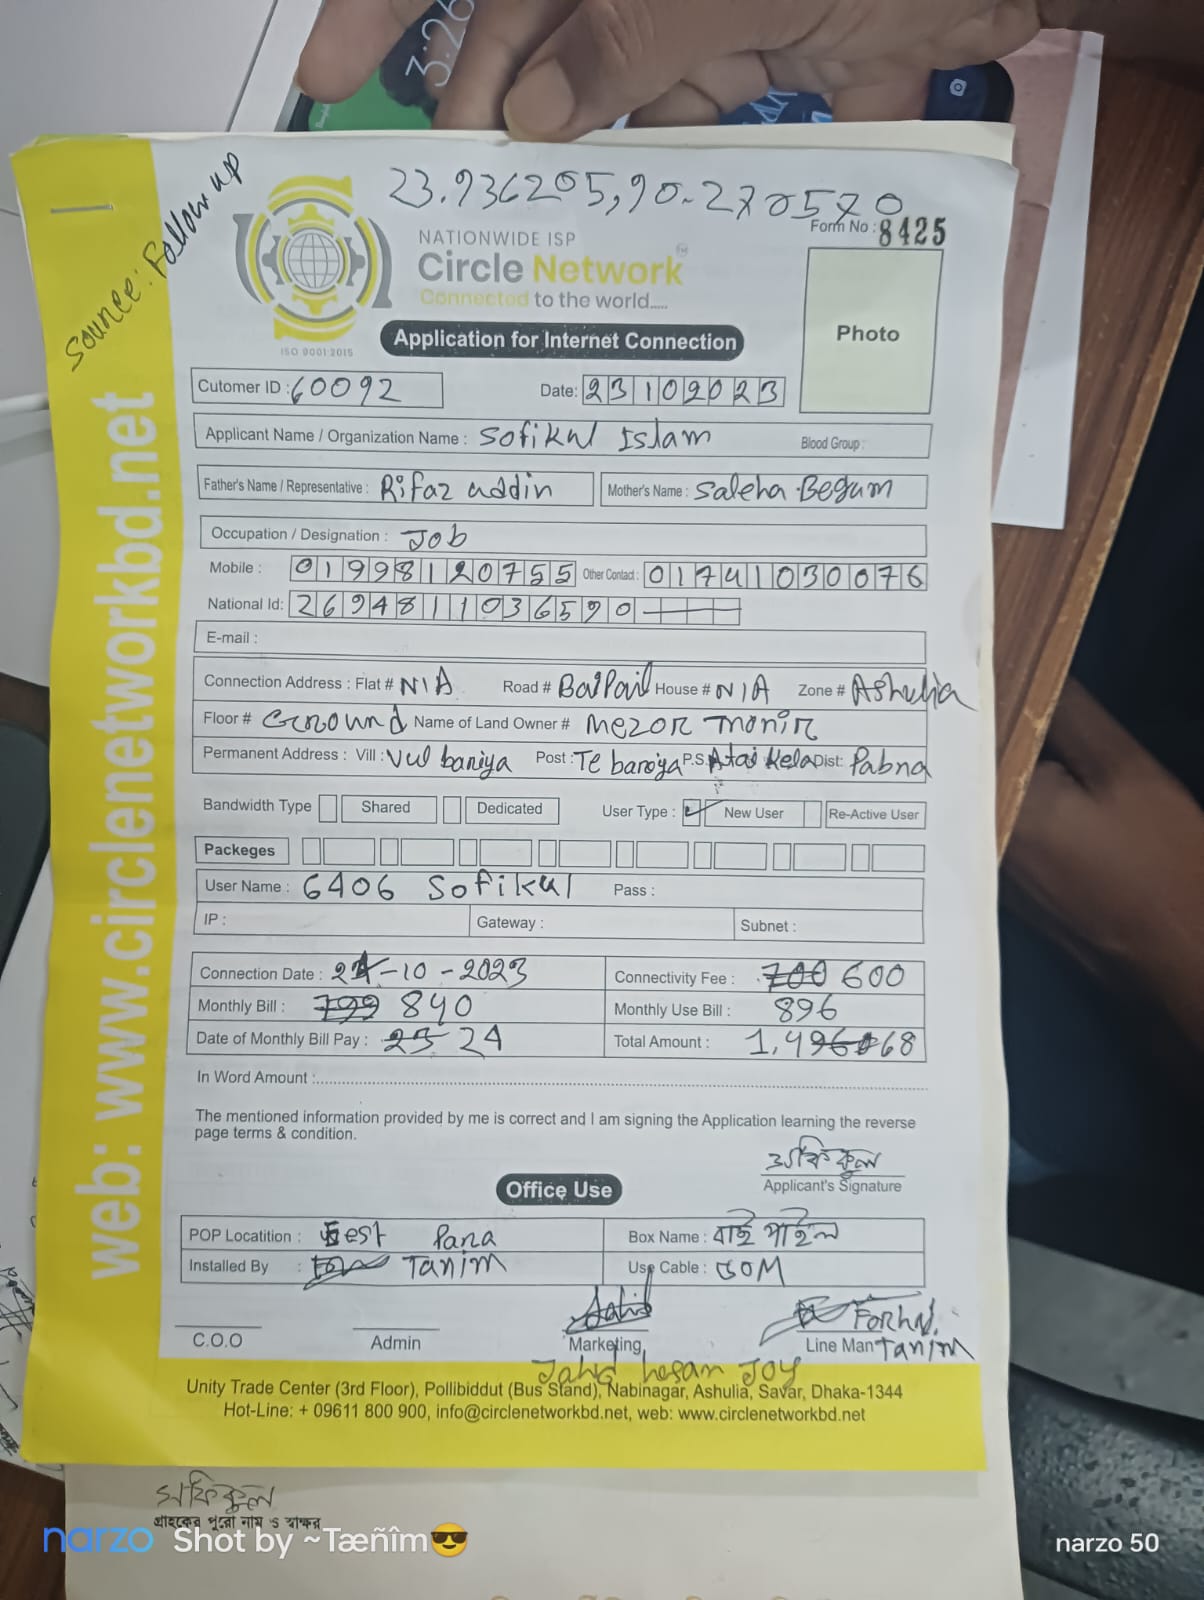 3:26
23.936205,90.270570
Source: Follow up
Form No : 8425
NATIONWIDE ISP
Circle Network
Connected to the world.....
ISO 9001:2015
Application for Internet Connection
Photo
Cutomer ID : 60092 Date: 23102023
Applicant Name / Organization Name : Sofikul Islam Blood Group :
Father's Name / Representative : Rifaz uddin Mother's Name : Saleha Begum
Occupation / Designation : Job
Mobile : 01998120755 Other Contact : 01741030076
National Id: 2694811036590
E-mail :
Connection Address : Flat # N/A Road # Baipail House # N/A Zone # Ashulia
Floor # Ground Name of Land Owner # Mezor Monir
Permanent Address : Vill : Vul baniya Post : Te baroya P.S. Atai Kela Dist: Pabna
Bandwidth Type Shared Dedicated User Type : New User Re-Active User
Packeges
User Name : 6406 Sofikul Pass :
IP : Gateway : Subnet :
Connection Date : 24-10-2023 Connectivity Fee : 700 600
Monthly Bill : 799 840 Monthly Use Bill : 896
Date of Monthly Bill Pay : 25 24 Total Amount : 1,496 68
In Word Amount :
The mentioned information provided by me is correct and I am signing the Application learning the reverse
page terms & condition.
সফিকুল
Applicant's Signature
Office Use
POP Locatition : Fest Para Box Name : বাই পাইল
Installed By : Tanim Use Cable : 50M
Forhad
C.O.O Admin Marketing Line Man Tanim
Jahid hasan Joy
Unity Trade Center (3rd Floor), Pollibiddut (Bus Stand), Nabinagar, Ashulia, Savar, Dhaka-1344
Hot-Line: + 09611 800 900, info@circlenetworkbd.net, web: www.circlenetworkbd.net
web: www.circlenetworkbd.net
সফিকুল
গ্রাহকের পুরো নাম ও স্বাক্ষর
narzo Shot by ~Tæñîm😎 narzo 50